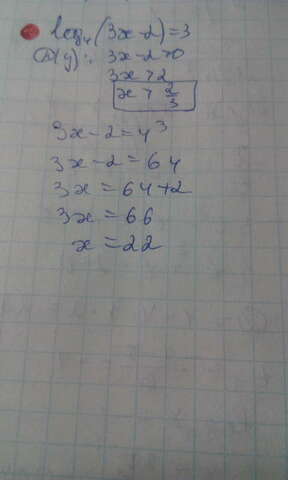 log₄(3x-2)=3
D(y): 3x-2>0
3x>2
x > 2/3
3x-2=4³
3x-2=64
3x=64+2
3x=66
x=22